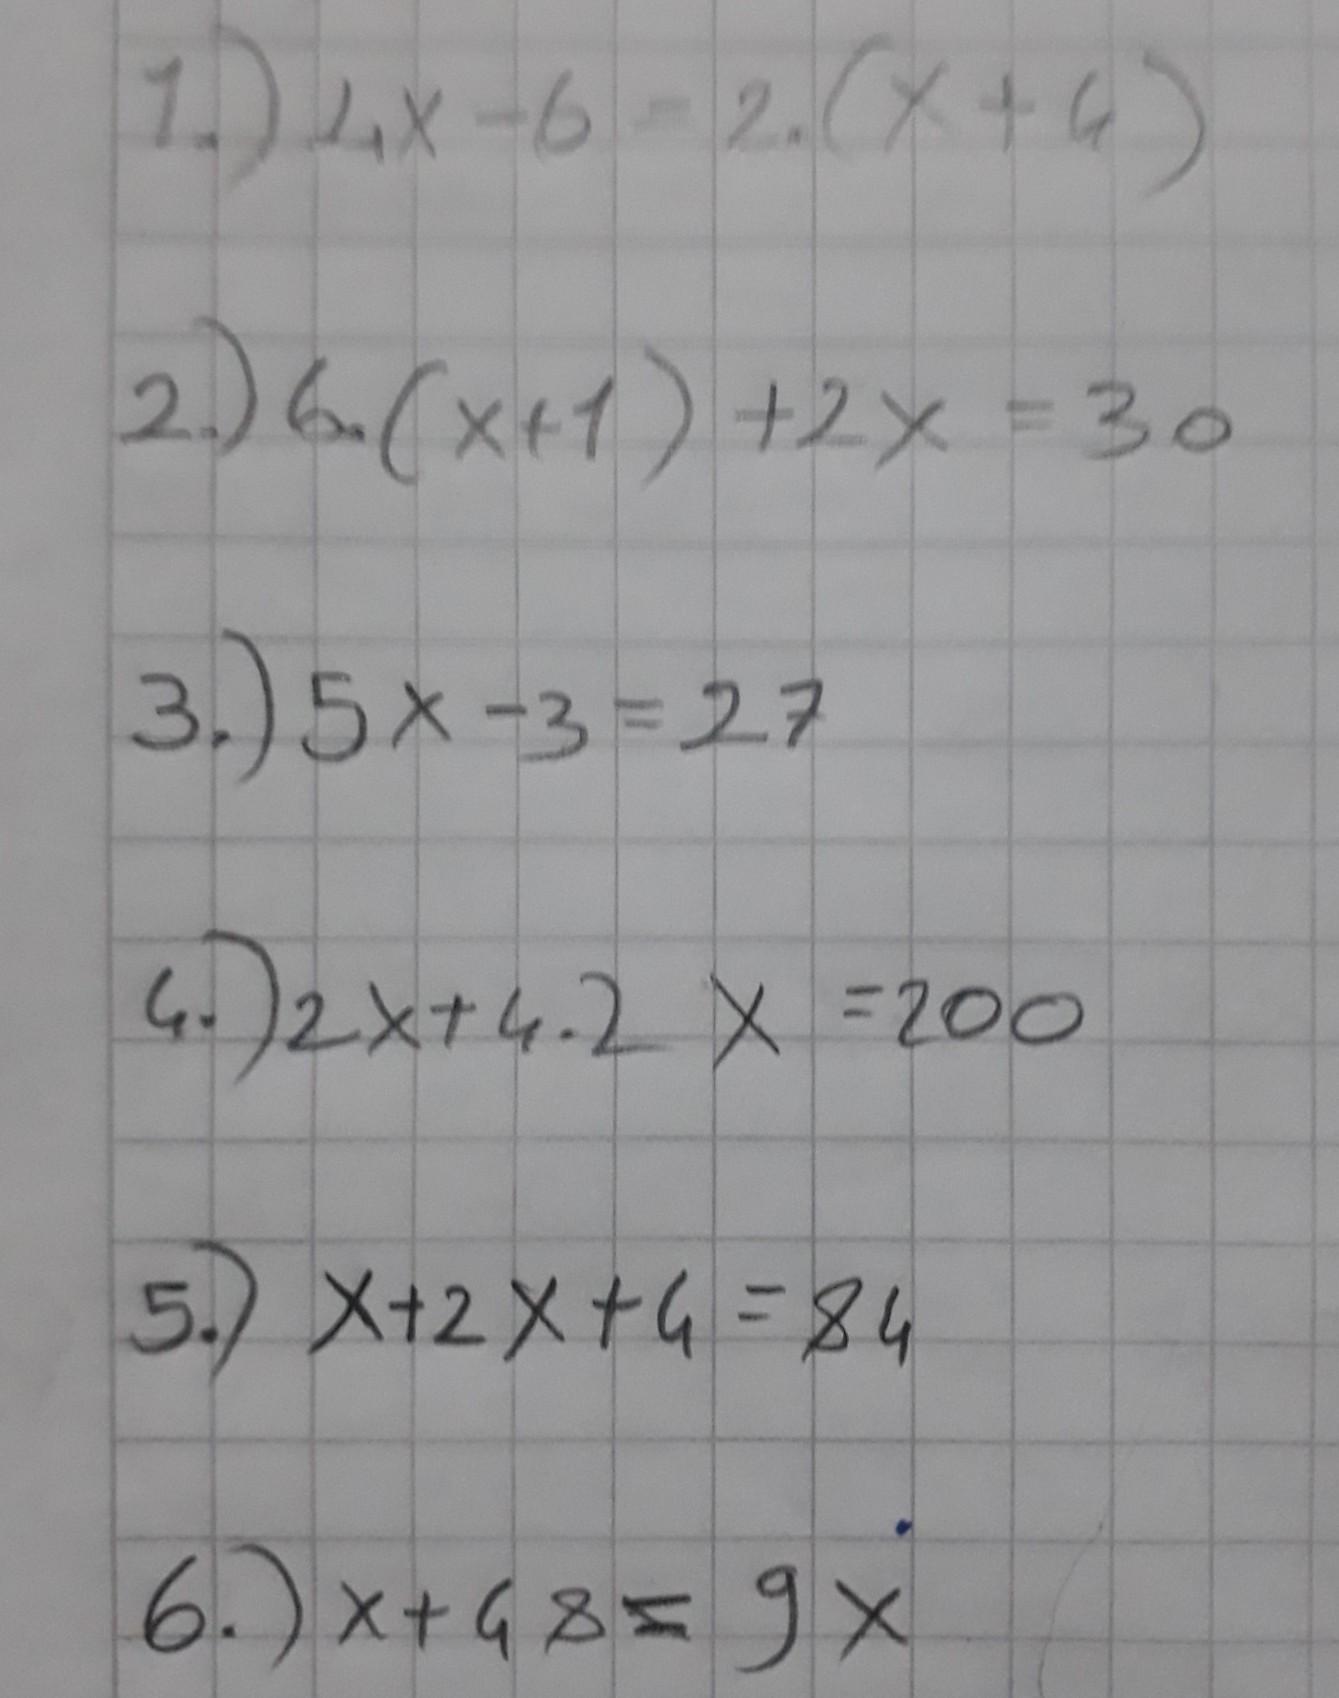 1.) 4x-6=2.(x+4)
2.) 6.(x+1)+2x=30
3.) 5x-3=27
4.) 2x+4.2x=200
5.) x+2x+4=84
6.) x+48=9x